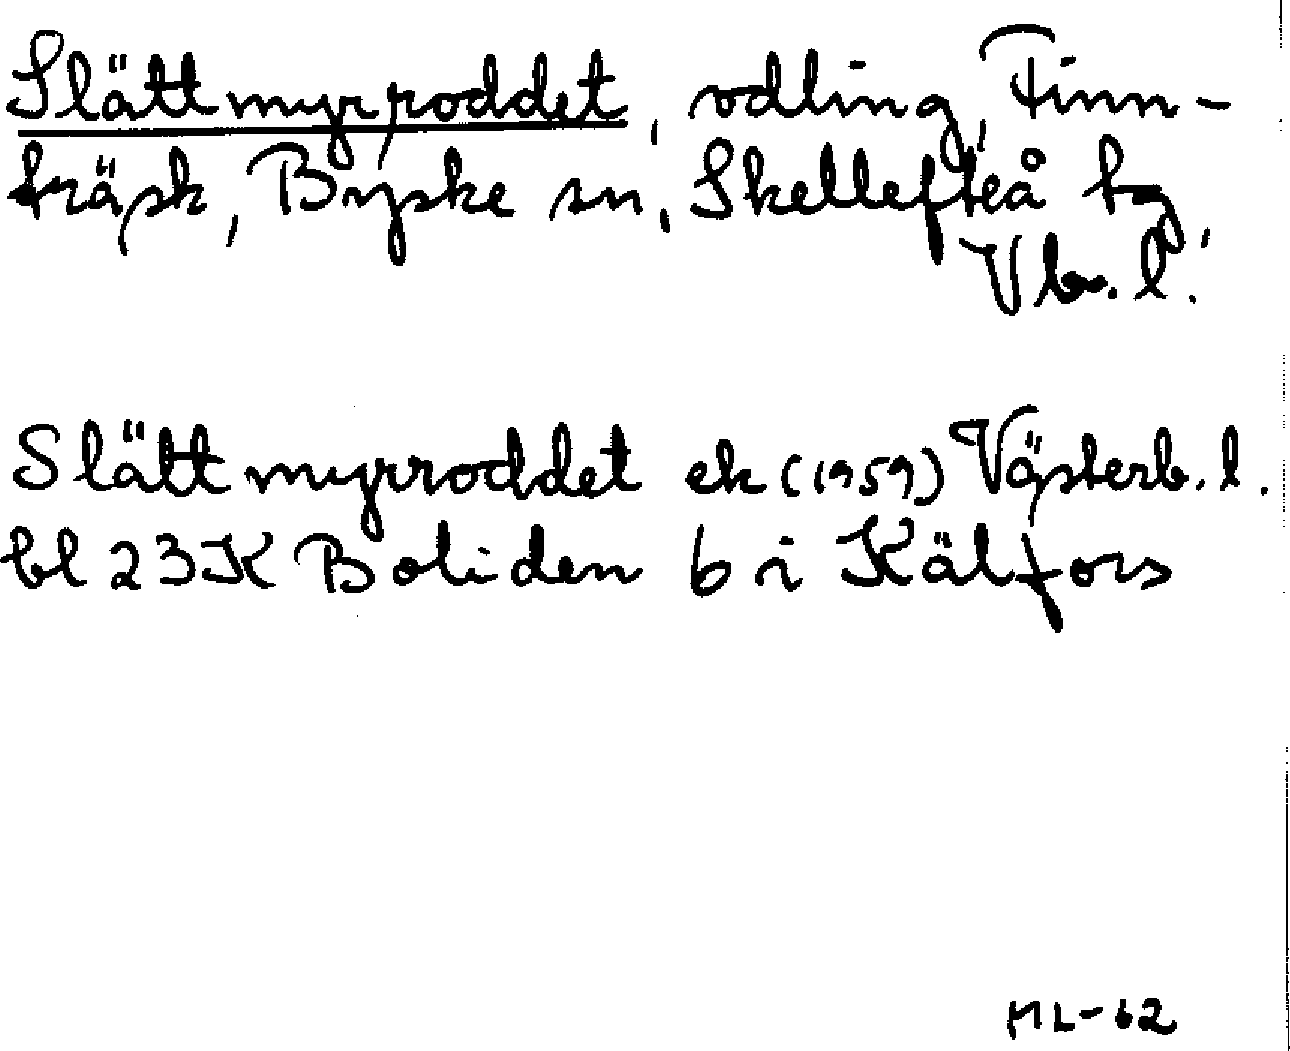 Slättmyrroddet, odling, Finn-
träsk, Byske sn, Skellefteå tg,
Vb. l.
Slättmyrroddet ek (1959) Västerb. l.
bl 23K Boliden 6 i Kälfors
ML-62